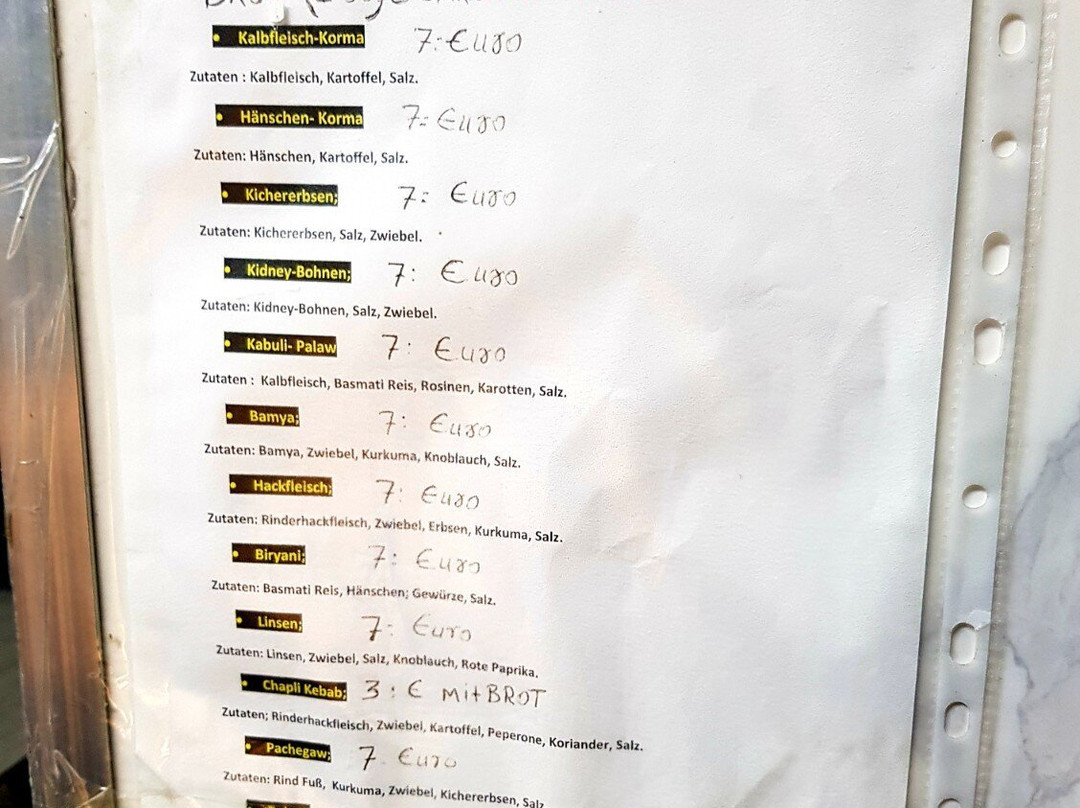 • Kalbfleisch-Korma 7:€uro
Zutaten : Kalbfleisch, Kartoffel, Salz.
• Hänschen- Korma 7:€uro
Zutaten: Hänschen, Kartoffel, Salz.
• Kichererbsen; 7: €uro
Zutaten: Kichererbsen, Salz, Zwiebel.
• Kidney-Bohnen; 7: €uro
Zutaten: Kidney-Bohnen, Salz, Zwiebel.
• Kabuli- Palaw 7: €uro
Zutaten : Kalbfleisch, Basmati Reis, Rosinen, Karotten, Salz.
• Bamya; 7: €uro
Zutaten: Bamya, Zwiebel, Kurkuma, Knoblauch, Salz.
• Hackfleisch; 7: €uro
Zutaten: Rinderhackfleisch, Zwiebel, Erbsen, Kurkuma, Salz.
• Biryani; 7: €uro
Zutaten: Basmati Reis, Hänschen; Gewürze, Salz.
• Linsen; 7: €uro
Zutaten: Linsen, Zwiebel, Salz, Knoblauch, Rote Paprika.
• Chapli Kebab; 3:€ mitBROT
Zutaten; Rinderhackfleisch, Zwiebel, Kartoffel, Peperone, Koriander, Salz.
• Pachegaw; 7. €uro
Zutaten: Rind Fuß, Kurkuma, Zwiebel, Kichererbsen, Salz